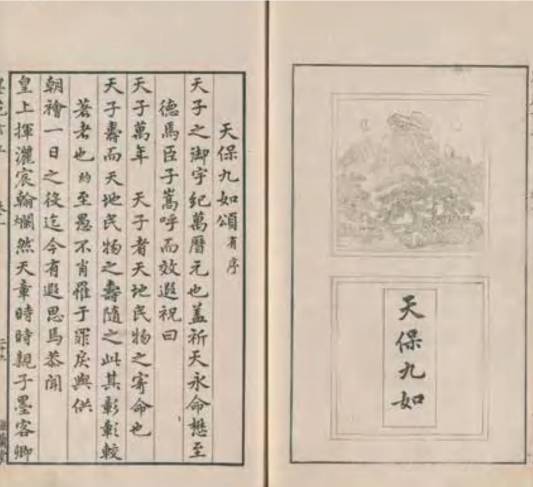 天保九如
天保九如頌有序
天子之御宇紀萬曆元也蓋祈天永命懋至
德焉臣子嵩呼而效遐祝曰
天子萬年 天子者天地民物之寄命也
天子壽而天地民物之壽隨之此其彰彰較
著者也約至愚不肖罹于罪戾與供
朝一日之後迄今有遐思焉恭聞
皇上揮灑宸翰爛然天章時時親子墨客卿